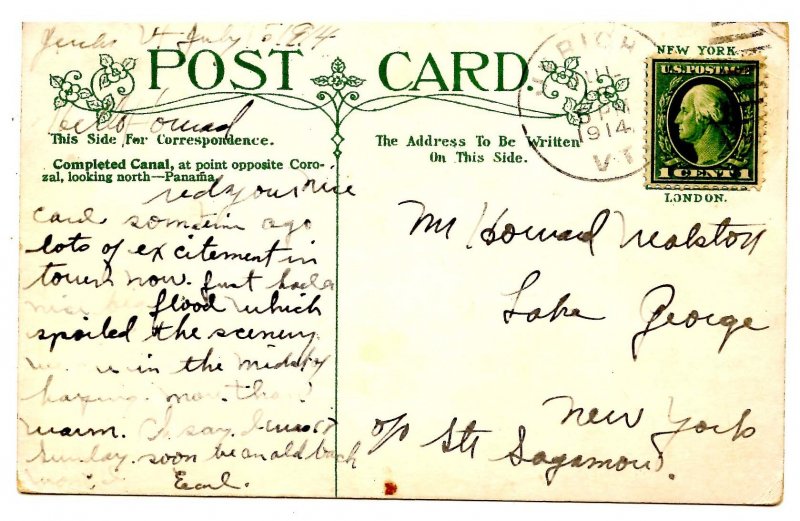 July 1914
POST CARD.
Hello Howard
This Side For Correspondence.
Completed Canal, at point opposite Coro-
zal, looking north—Panama.
recd your nice
card sometim ago
lots of excitement in
town now. Just had a
nice flood which
spoiled the scenery
in the
haying. more than
warm. I say.
Sunday. soon be an old bach
Earl.
The Address To Be Written
On This Side.
RICH
1914
VT
NEW YORK
U.S. POSTAGE
1 CENT 1
LONDON.
Mr Howard Ralston
Lake George
New York
c/o Str Sagamore.